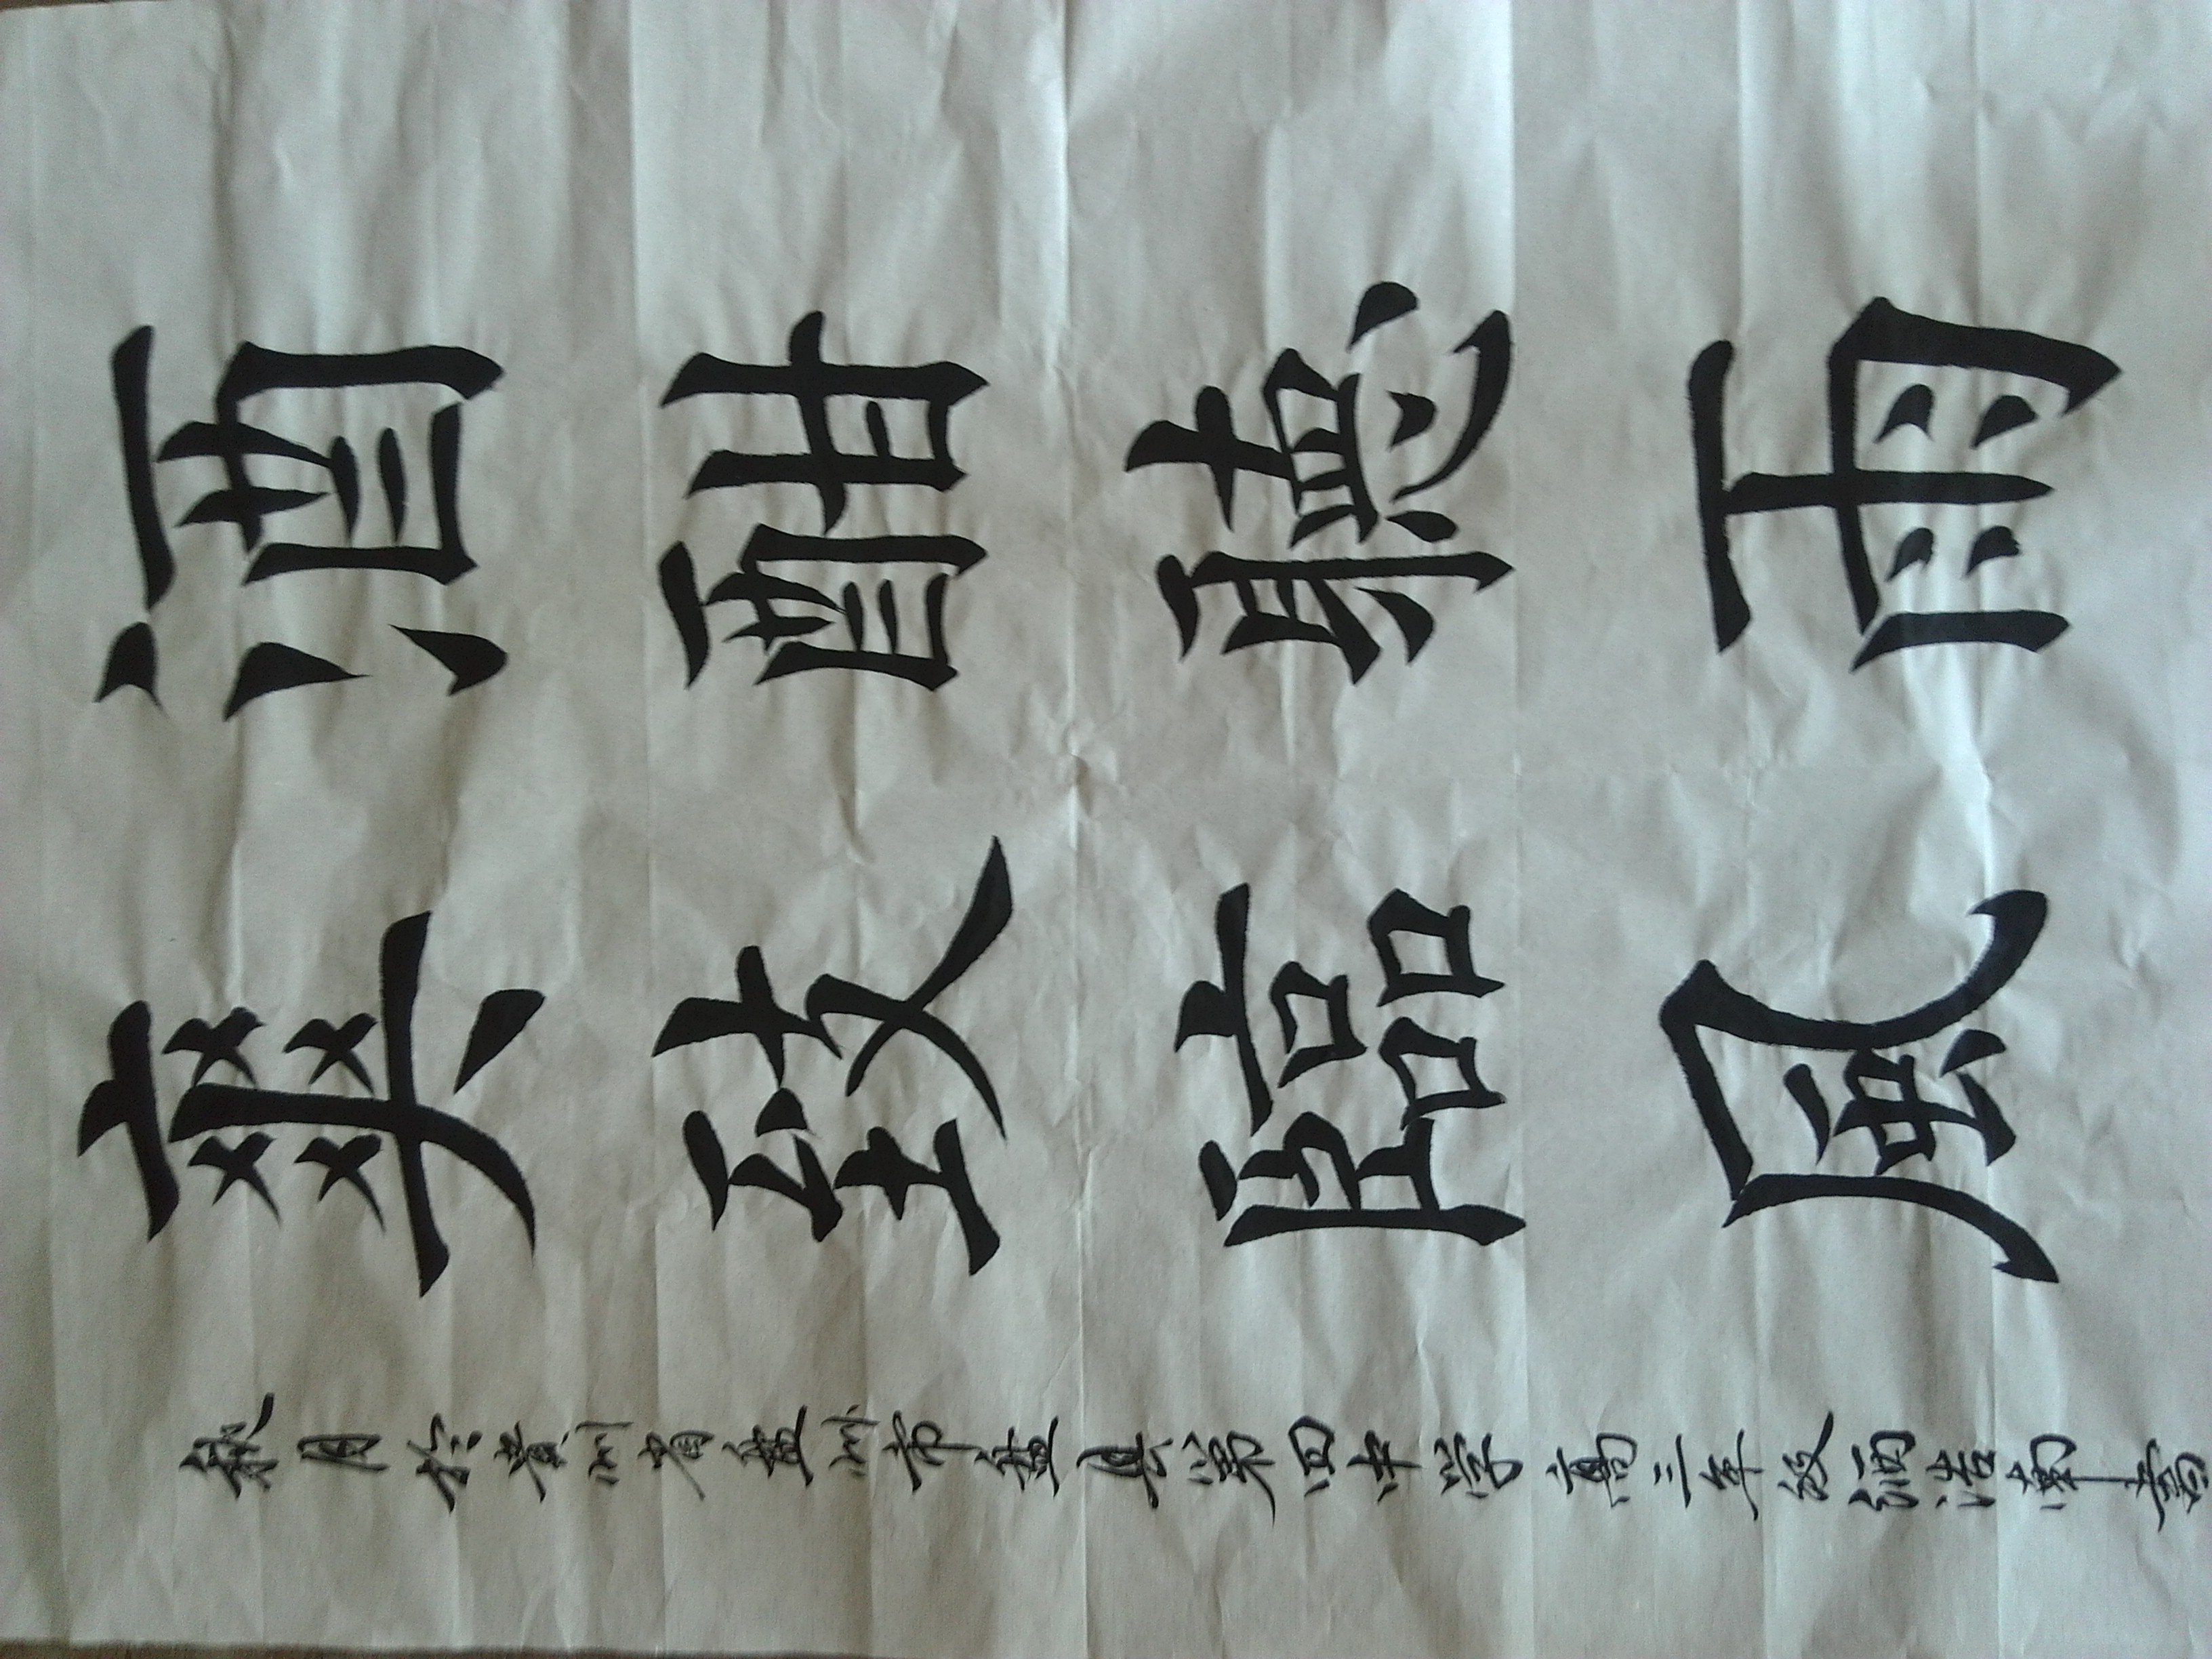 酒酣聽雨
爽致臨風
秋月於貴州省盘州市盘县第四中学高三年级酒浩南書